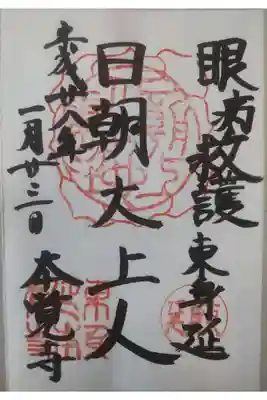 眼病救護
東身延
日朝大上人
平成廿八年
一月廿三日
本覚寺